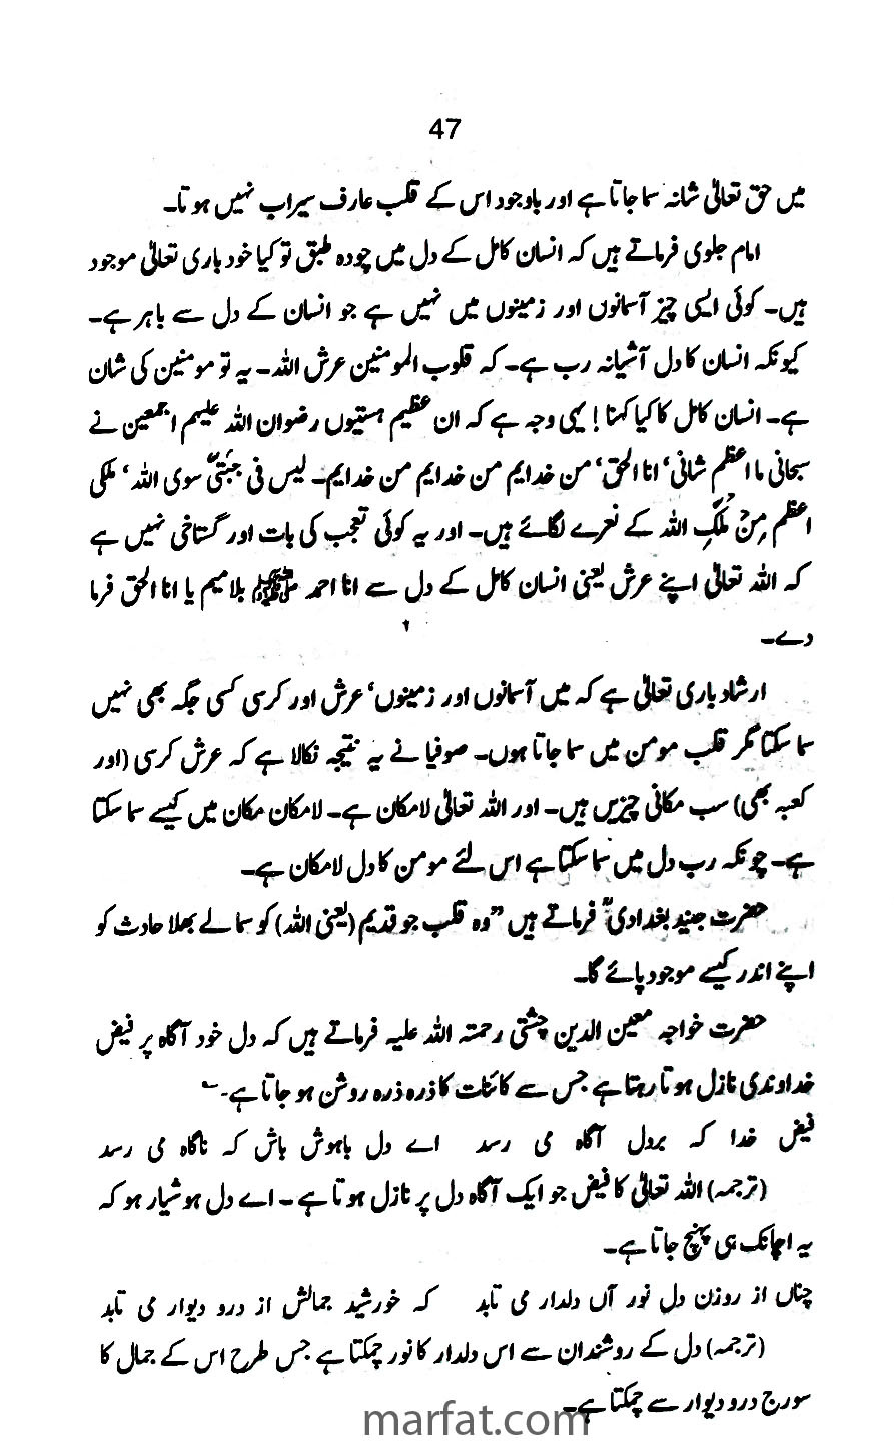 47
میں حق تعالیٰ شانہ سما جاتا ہے اور باوجود اس کے قلب عارف سیراب نہیں ہوتا۔
امام جلوی فرماتے ہیں کہ انسان کامل کے دل میں چودہ طبق تو کیا خود باری تعالیٰ موجود
ہیں۔ کوئی ایسی چیز آسمانوں اور زمینوں میں نہیں ہے جو انسان کے دل سے باہر ہے۔
کیونکہ انسان کا دل آشیانہ رب ہے۔ کہ قلوب المومنین عرش اللہ۔ یہ تو مومنین کی شان
ہے۔ انسان کامل کا کیا کہنا! یہی وجہ ہے کہ ان عظیم ہستیوں رضوان اللہ علیہم اجمعین نے
سبحانی ما اعظم شانی‘ انا الحق‘ من خدایم من خدایم من خدایم۔ لیس فی جبتی سوی اللہ‘ ملکی
اعظم مِنْ مُلکِ اللہ کے نعرے لگائے ہیں۔ اور یہ کوئی تعجب کی بات اور گستاخی نہیں ہے
کہ اللہ تعالیٰ اپنے عرش یعنی انسان کامل کے دل سے انا احمد ﷺ بلا میم یا انا الحق فرما
دے۔
ارشاد باری تعالیٰ ہے کہ میں آسمانوں اور زمینوں‘ عرش اور کرسی کسی جگہ بھی نہیں
سما سکتا مگر قلب مومن میں سما جاتا ہوں۔ صوفیا نے یہ نتیجہ نکالا ہے کہ عرش کرسی (اور
کعبہ بھی) سب مکانی چیزیں ہیں۔ اور اللہ تعالیٰ لامکان ہے۔ لامکان مکان میں کیسے سما سکتا
ہے۔ چونکہ رب دل میں سما سکتا ہے اس لئے مومن کا دل لامکان ہے۔
حضرت جنید بغدادیؒ فرماتے ہیں ”وہ قلب جو قدیم (یعنی اللہ) کو سما لے بھلا حادث کو
اپنے اندر کیسے موجود پائے گا۔
حضرت خواجہ معین الدین چشتی رحمتہ اللہ علیہ فرماتے ہیں کہ دل خود آگاہ پر فیض
خداوندی نازل ہوتا رہتا ہے جس سے کائنات کا ذرہ ذرہ روشن ہو جاتا ہے۔
فیض خدا کہ بردل آگاہ می رسد اے دل باہوش باش کہ ناگاہ می رسد
(ترجمہ) اللہ تعالیٰ کا فیض جو ایک آگاہ دل پر نازل ہوتا ہے۔ اے دل ہوشیار ہو کہ
یہ اچانک ہی پہنچ جاتا ہے۔
چناں از روزن دل نور آں دلدار می تابد کہ خورشید جمالش از درو دیوار می تابد
(ترجمہ) دل کے روشندان سے اس دلدار کا نور چمکتا ہے جس طرح اس کے جمال کا
سورج درو دیوار سے چمکتا ہے۔
marfat.com